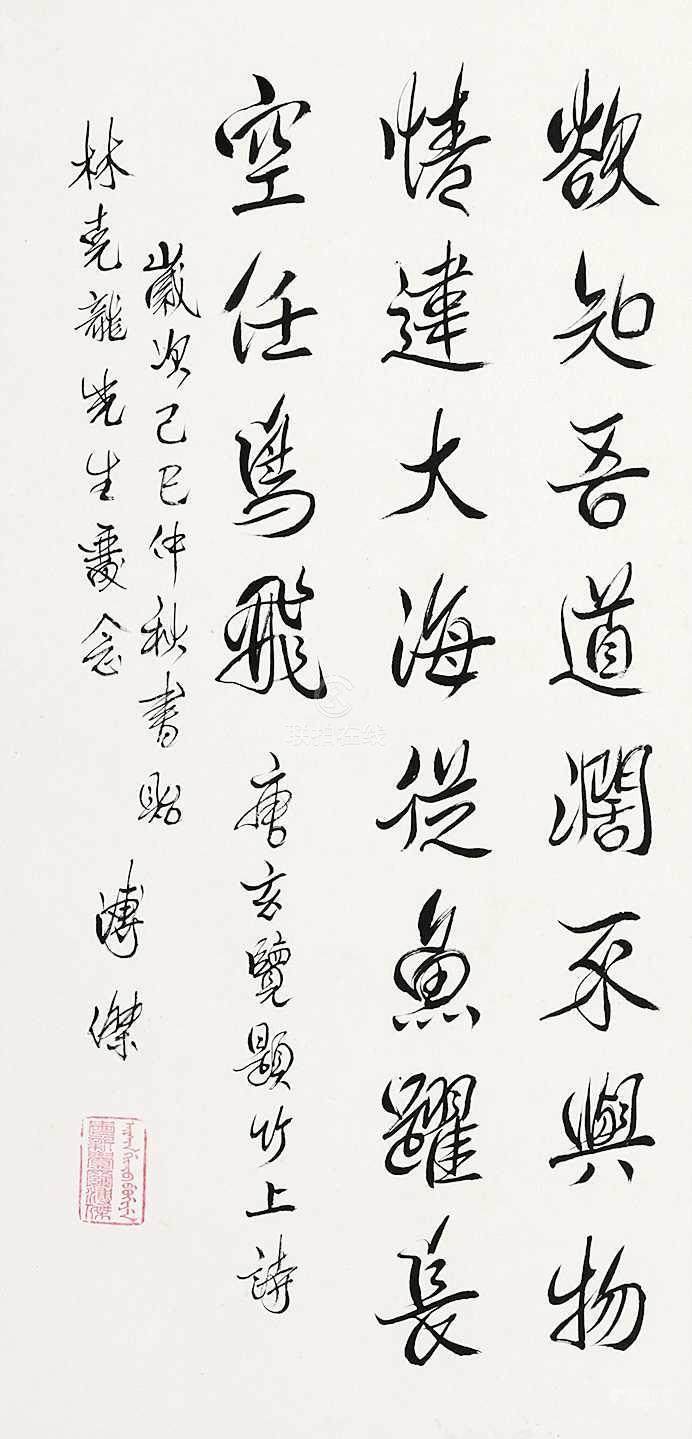 欲知吾道濶不與物
情違大海從魚躍長
空任鳥飛
唐玄覽題竹上詩
歲次己巳仲秋書貽
林堯龍先生愛念
溥傑
联拍在线